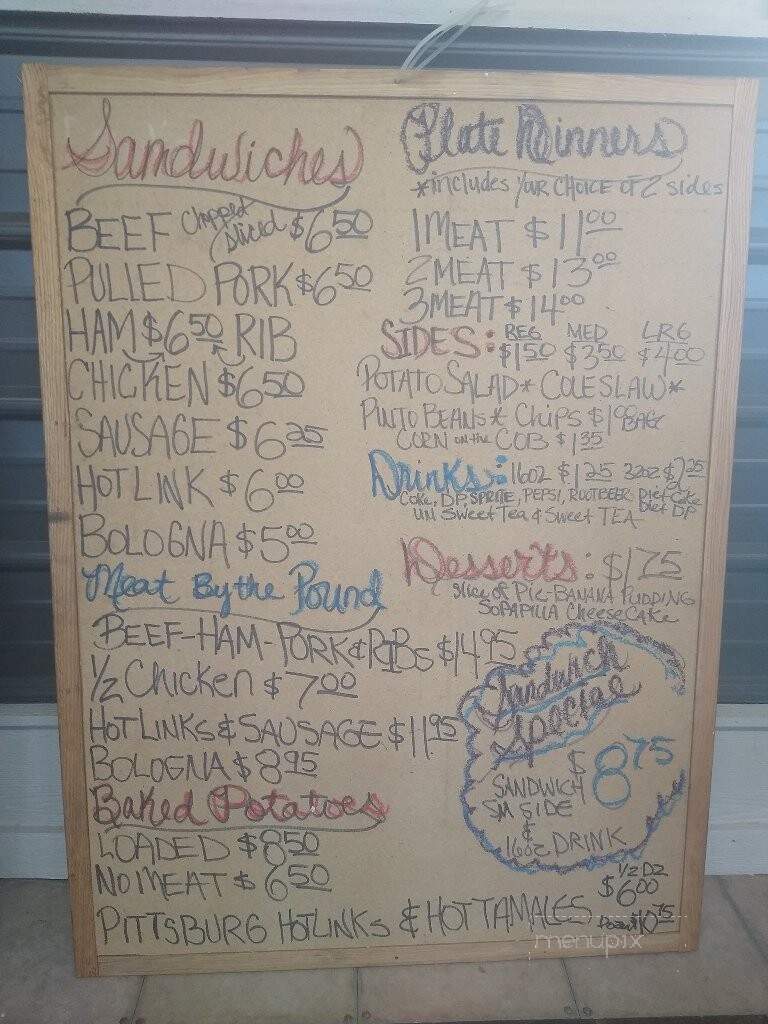 Sandwiches
BEEF Chopped Sliced $6.50
PULLED PORK $6.50
HAM $6.50 RIB
CHICKEN $6.50
SAUSAGE $6.25
HOT LINK $6.00
BOLOGNA $5.00
Meat By the Pound
BEEF-HAM-PORK & RIBS $14.95
1/2 Chicken $7.00
HOT LINKS & SAUSAGE $11.95
BOLOGNA $8.95
Baked Potatoes
LOADED $8.50
NO MEAT $6.50
PITTSBURG HOTLINKS & HOT TAMALES 1/2 DZ $6.00
Dozen $10.75
Plate Dinners
*includes YOUR CHOICE OF 2 sides
1 MEAT $11.00
2 MEAT $13.00
3 MEAT $14.00
SIDES: REG $1.50 MED $3.50 LRG $4.00
POTATO SALAD * COLESLAW *
PINTO BEANS * Chips $1.98 BAG
CORN on the COB $1.35
Drinks: 16oz $1.25 32oz $2.25
Coke, DP, SPRITE, PEPSI, ROOTBEER, Diet Coke Diet DP
UN Sweet Tea & Sweet TEA
Desserts: $1.75
Slice of Pie-BANANA PUDDING
SOPAPILLA CheeseCake
Sandwich
Special
$8.75
SANDWICH
SM SIDE
&
16oz DRINK
menupix